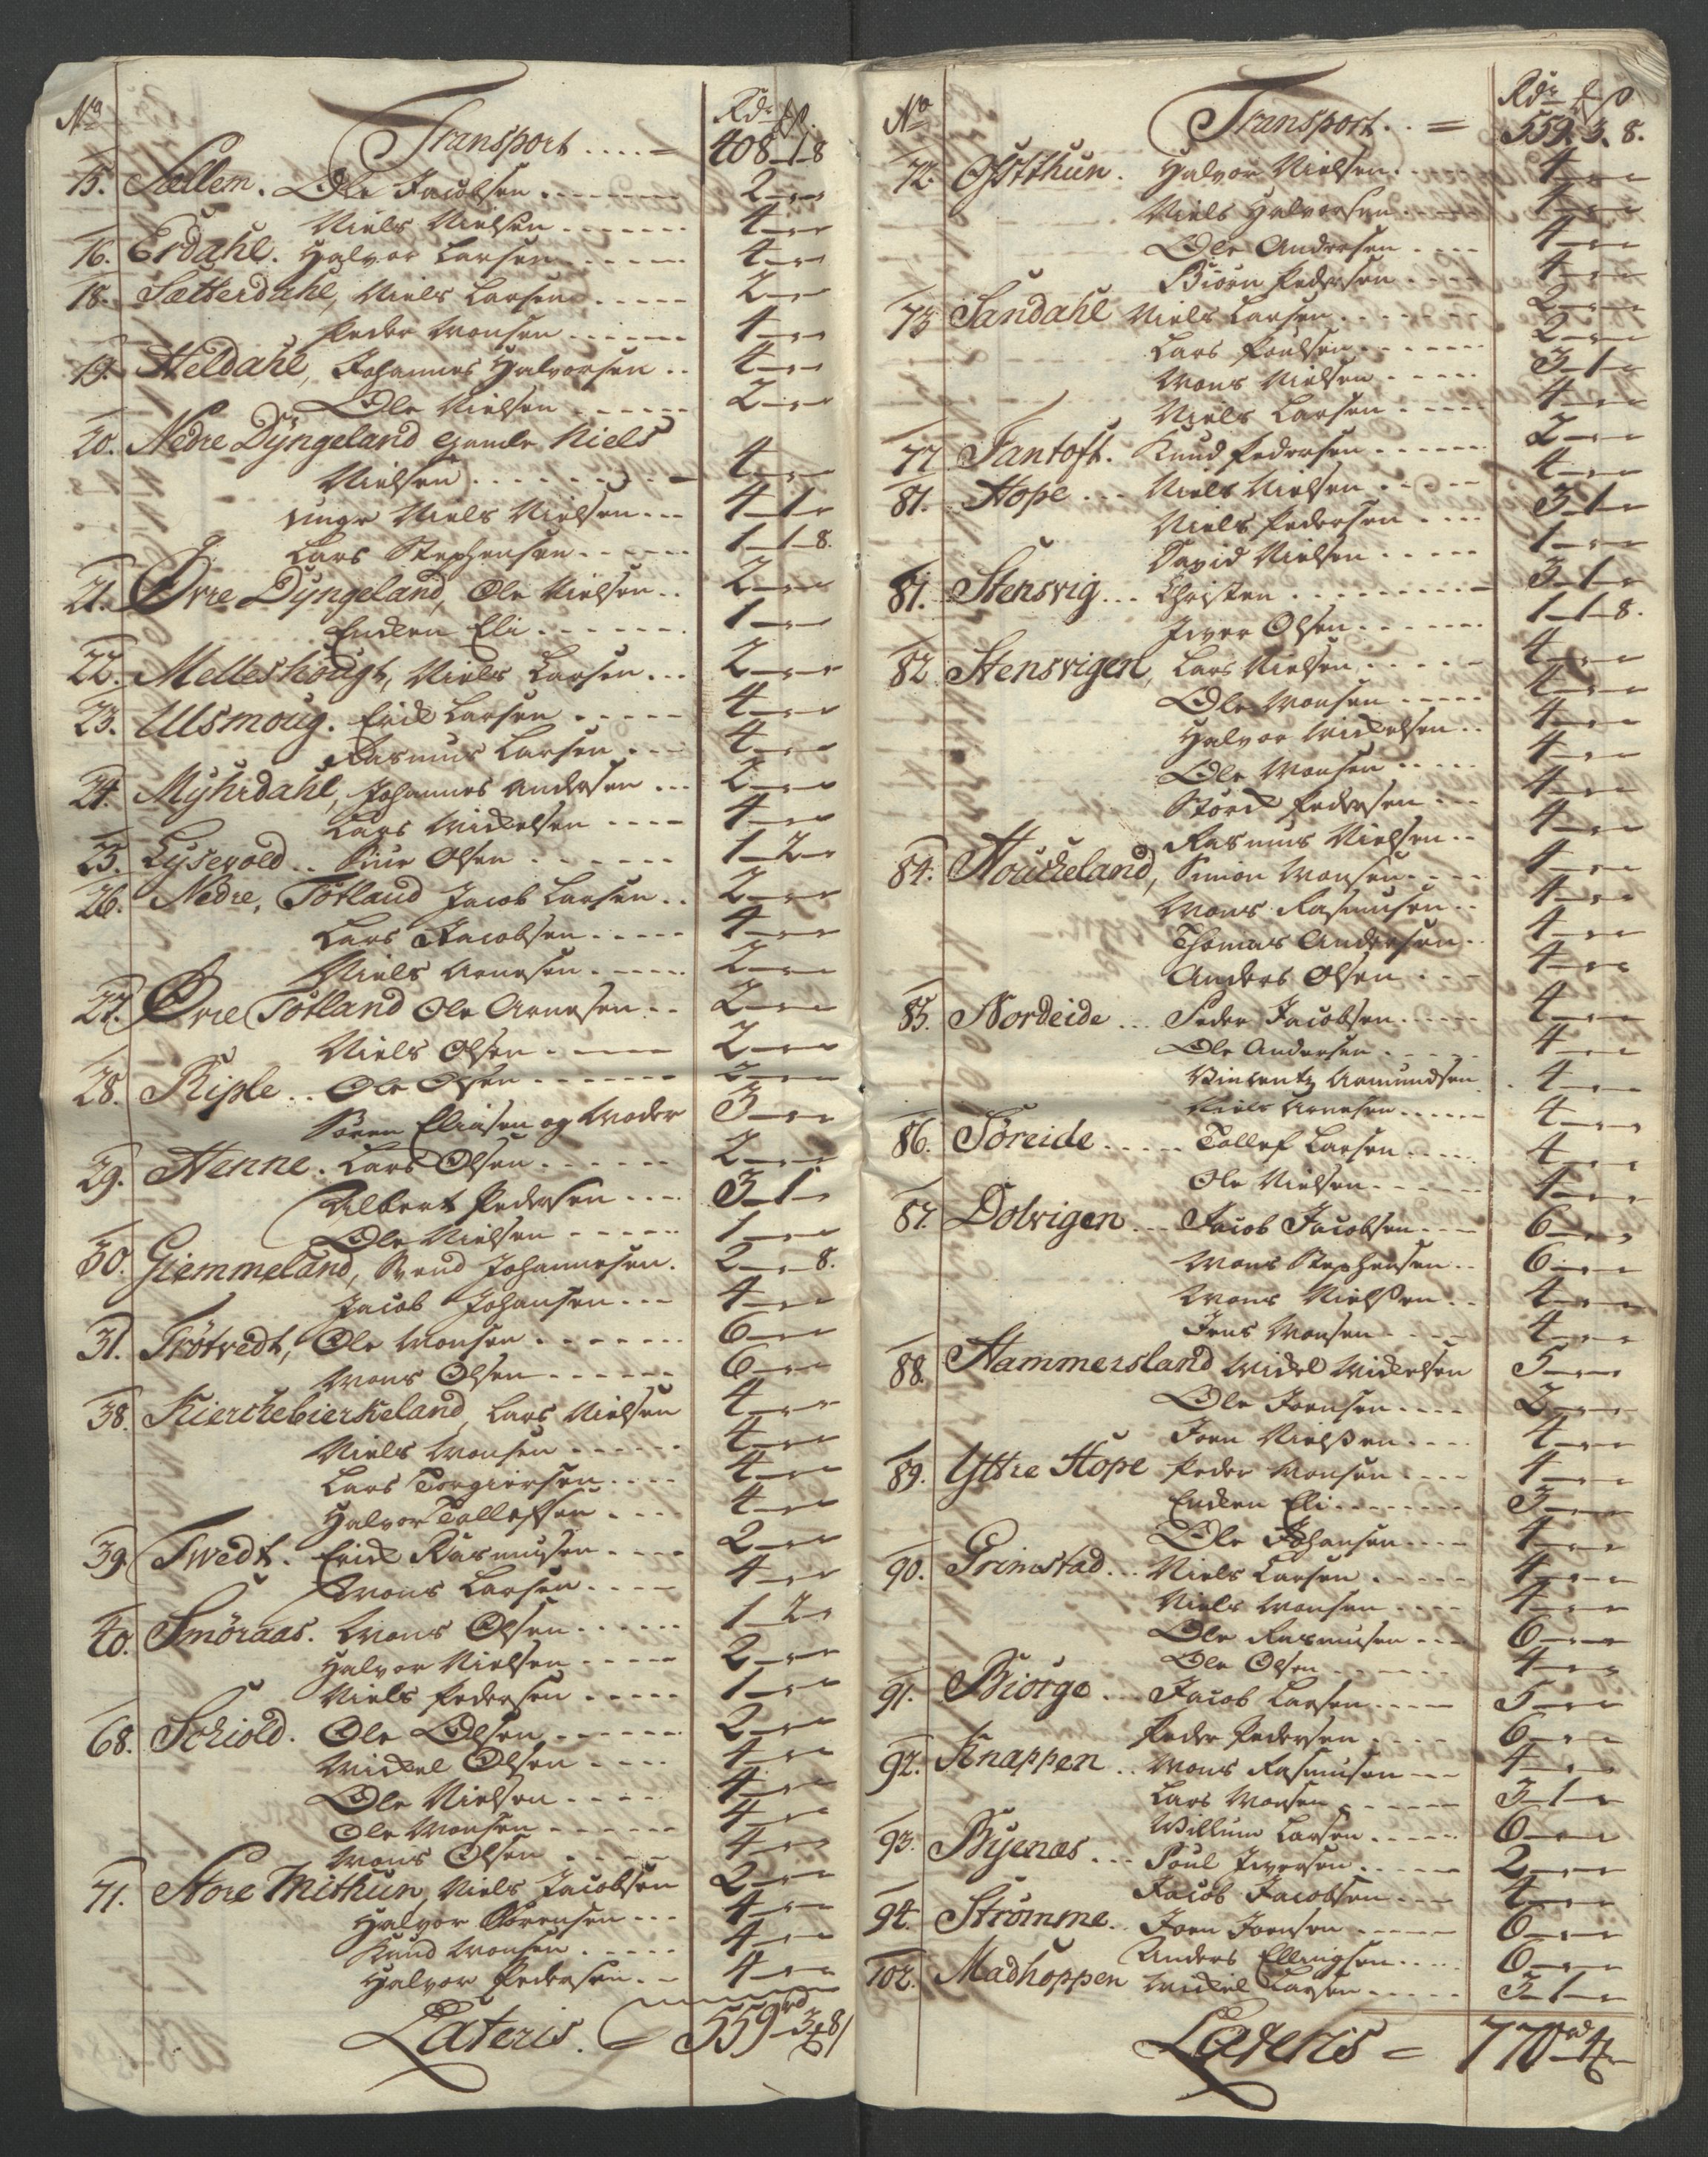 No Rdr ₰ β.
Transport .... = 408-1-8
15. Sællem. Ole Jacobsen ....... 2-"-"
Niels Nielsen ....... 4-"-"
16. Erdahl. Halvor Larsen ...... 4-"-"
18. Sætterdahl, Niels Larsen ..... 2-"-"
Peder Monsen ...... 4-"-"
19. Heldahl, Johannes Halvorsen .. 4-"-"
Ole Nielsen ...... 2-"-"
20. Nedre Dÿngeland gamle Niels
Nielsen ........ 4-"-"
unge Niels Nielsen ... 4-1-"
Lars Stephensen ..... 1-1-8.
21. Øvre Dÿngeland, Ole Nielsen .. 2-"-"
Enken Eli ...... 1-"-"
22. Melleshough, Niels Larsen ... 2-"-"
23. Ulsmoug. Erick Larsen ..... 4-"-"
Rasmus Larsen ... 4-"-"
24. Mÿhrdahl, Johannes Andersen ... 2-"-"
Lars Mickelsen .... 4-"-"
25. Lÿsevold .. Siur Olsen ...... 1-2-"
26. Nedre, Totland Jacob Larsen .. 2-"-"
Lars Jacobsen ..... 4-"-"
Niels Arnesen ..... 2-"-"
27. Øvre Totland Ole Arnesen .. 2-"-"
Niels Olsen .---- 2-"-"
28. Riple .. Ole Olsen ...... 2-"-"
Søren Eliasen og Moder 3-"-"
29. Henne. Lars Olsen ...... 2-"-"
Albert Pedersen .... 3-1-"
Ole Nielsen ..... 1-"-"
30. Giemmeland, Knud Johannesen. 2-"-8.
Jacob Johansen ... 4-"-"
31. Trötvedt, Ole Monsen ....... 6-"-"
Mons Olsen ...... 6-"-"
38. Kierchebierkeland, Lars Nielsen 4-"-"
Niels Monsen ...... 4-"-"
Lars Torgiersen .... 4-"-"
Halvor Tollefsen ... 4-"-"
39. Twedt. Erick Rasmusen .... 2-"-"
Mons Larsen .... 4-"-"
40. Smöraas. Mons Olsen ...... 1-2-"
Halvor Nielsen .... 2-"-"
Niels Pedersen ..... 1-"-"
68. Schiold. Ole Olsen ...... 2-"-"
Mickel Olsen .... 4-"-"
Ole Nielsen .... 4-"-"
Ole Monsen ...... 4-"-"
Mons Olsen ..... 4-"-"
71. Store Mithun, Niels Jacobsen 2-"-"
Halvor Sörensen ... 4-"-"
Knud Monsen ..... 4-"-"
Halvor Pedersen .. 4-"-"
Lateris. = 559rd-3-8
No Rdr ₰ β
Transport .. = 559. 3. 8.
72. Østthun. Halvor Nielsen ..... 4-"-"
Niels Halvorsen ... 4-"-"
Ole Andersen .... 4-"-"
Biörn Pedersen .... 4-"-"
73. Sandahl Niels Larsen ....... 2-"-"
Lars Poulsen ...... 2-"-"
Mons Nielsen ..... 3-1-"
Niels Larsen ..... 4-"-"
77. Fantoft. Knud Pedersen ...... 2-"-"
81. Hope ... Niels Nielsen ..... 4-"-"
Niels Pedersen .... 3-1-"
David Nielsen ..... 1-"-"
81. Stensvig ... Christen ......... 3-1-"
Iver Olsen ...... 1-1-8.
82. Stensvigen, Lars Nielsen ..... 4-"-"
Ole Monsen ..... 4-"-"
Halvor Mickelsen .. 4-"-"
Ole Monsen ..... 4-"-"
Störck Pedersen ... 4-"-"
Rasmus Nielsen .. 4-"-"
84. Houckeland, Simon Monsen .... 4-"-"
Mons Rasmusen .. 4-"-"
Thomas Andersen . 4-"-"
Anders Olsen ... 4-"-"
85. Nordeide ... Peder Jacobsen ..... 4-"-"
Ole Andersen ..... 4-"-"
Vincentz Asmundsen . 4-"-"
Niels Arnesen ..... 4-"-"
86. Söreide ..... Tollef Larsen ..... 4-"-"
Ole Nielsen ...... 4-"-"
87. Dolvigen ... Jacob Jacobsen ... 6-"-"
Mons Stephensen .. 6-"-"
Mons Nielsen .. 4-"-"
Jens Monsen .... 4-"-"
88. Hammersland Mickel Mickelsen 5-"-"
Ole Joensen .... 2-"-"
Joen Nielsen .... 4-"-"
89. Ÿttre Hope Peder Monsen .... 4-"-"
Enken Eli ....... 3-"-"
Ole Johansen .... 4-"-"
90. Grimstad ... Niels Larsen ..... 4-"-"
Niels Monsen .... 4-"-"
Ole Rasmusen ... 6-"-"
Ole Olsen ...... 4-"-"
91. Biörge ... Jacob Larsen .... 5-"-"
Peder Pedersen .... 6-"-"
92. Knappen .. Mons Rasmusen ... 4-"-"
Lars Monsen ...... 3-1-"
Willum Larsen ..... 6-"-"
93. Bÿenæs ... Poul Iversen ..... 2-"-"
Jacob Jacobsen ... 4-"-"
94. Strömme. Joen Joensen ..... 6-"-"
Anders Ellingsen .... 6-"-"
102. Madhoppen Mickel Larsen ..... 3-1-"
Lateris = 770rd-4-"